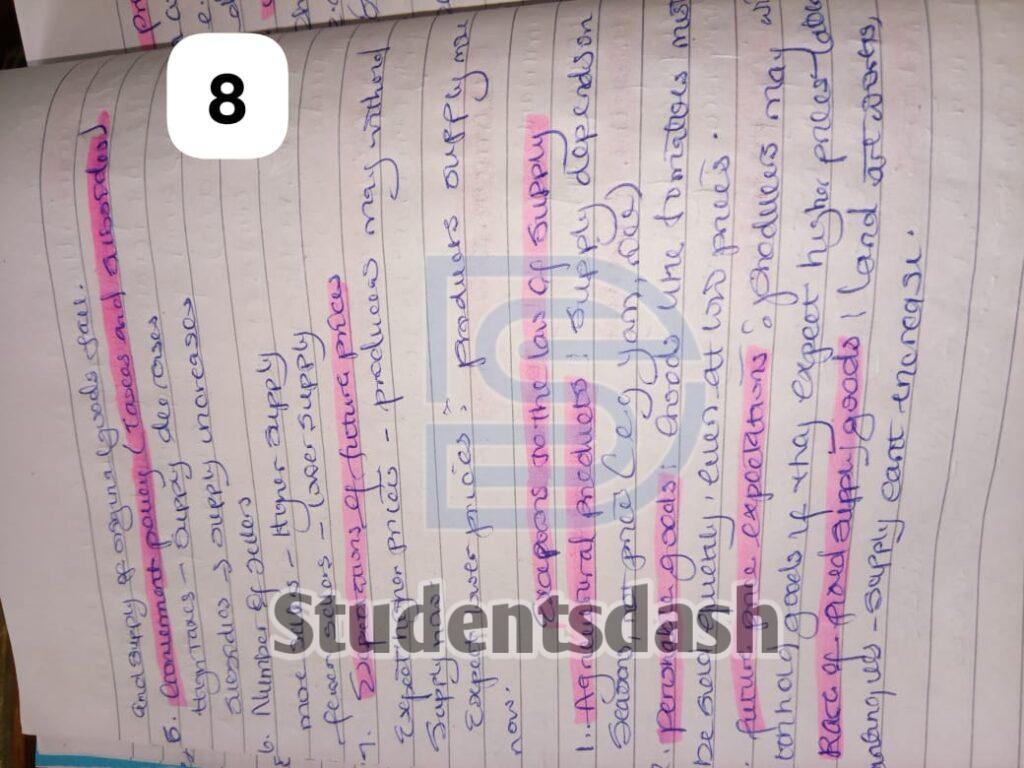 8
and supply of original goods fall.
5. Government policy (Taxes and subsides)
High taxes - supply decreases
Subsidies → supply increases
6. Number of sellers
more sellers - Higher supply
fewer sellers - lower supply
7. Expectations of future prices
Expect higher prices - producers may withold
supply now.
Expect lower prices: producers supply more
now.
Exceptions to the law of supply
1. Agricultural products: supply depends on
season, not price (eg yam, rice)
2. perishable goods: Goods like tomatoes must
be sold quickly, even at low prices.
future price expectations: producers may
withhold goods if they expect higher prices later
Rare or fixed supply goods: land artworks,
antiques - supply cant increase.
Studentsdash